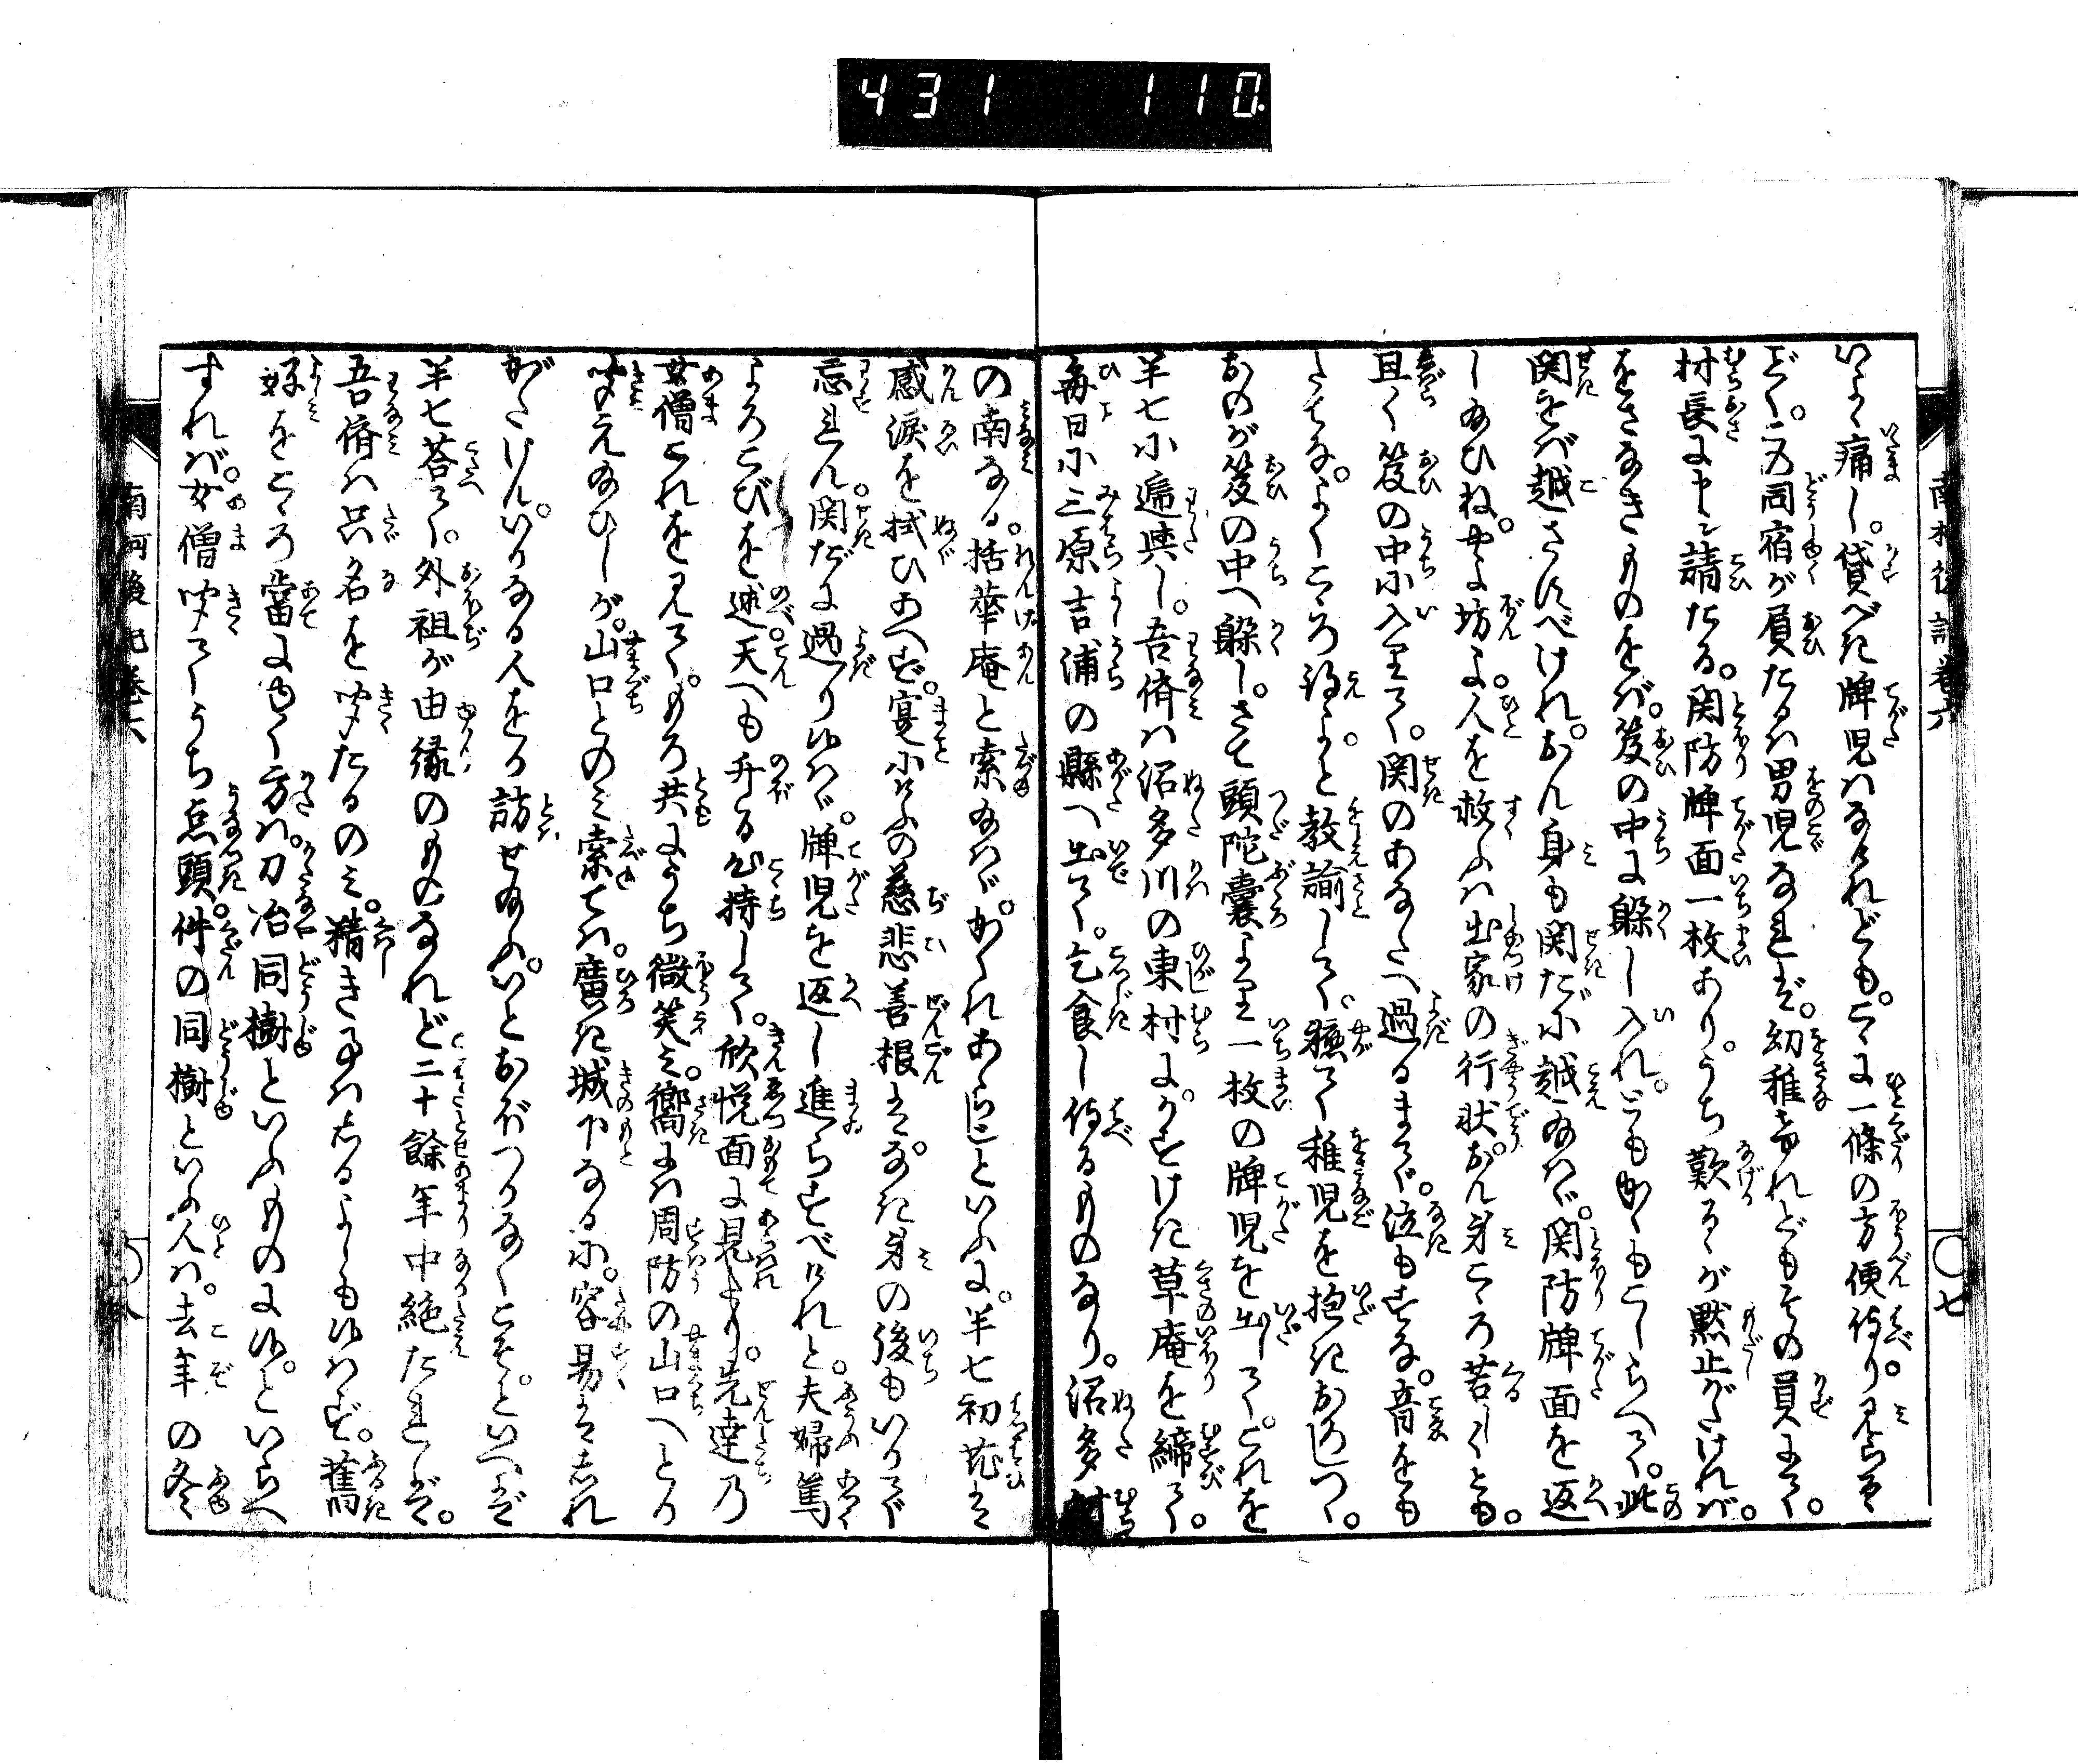 431 110
いと痛し。貸べき牌児はなけれども。こゝに一條の方便侍り。見らるゝ
ごとく。二個同宿が屓たるは男児なれば。幼稚けれどもその員にて。
村長に申シ請たる。関防牌面一枚あり。うち歎るゝが黙止がたければ。
をさなきものをば。笈の中に躱し入れ。ともかくもこしらへて。此
関をば越さすべけれ。おん身も関だに越給はゞ。関防牌面を返
し給ひね。やよ坊よ。人を救ふは出家の行状。おん身こゝろ苦しくとも。
且く笈の中に入りて。関のあなたへ過るまで。泣もすな。音をも
たてな。よくこゝろ得よ。と教諭して。軈て稚児を抱きおろしつゝ。
おのが笈の中へ躱し。さて頭陀嚢より一枚の牌児を出して。これを
半七に逓與し。吾儕は沼多川の東村に。かすけき草庵を締て。
毎日に三原吉浦の縣へ出て。乞食し侍るものなり。沼多村
の南なる。括華庵と索給はゞ。かくれあらじといふに。半七初花は
感涙を拭ひあへず。寔に今の慈悲善根は。なき身の後もいかで
忘れん。関だに過り候はゞ。牌児を返し進らすべけれと。夫婦篤
よろこびを述。天へも升る心持して。欣悦面に見れたり。先達の
女僧これを見て。もろ共にうち微笑み。嚮には周防の山口へとか
聞え給ひしが。山口とのみ索ては。廣き城下なるに。容易はしれ
がたけん。いかなる人をか訪せ給ふ。いとおぼつかなくこそ。といへば
半七荅て。外祖が由縁のものなれど二十餘年中絶たれば。
吾儕は只名を聞たるのみ。精き事はしるよしも候はず。舊
好をこゝろ當にゆく方は。刀冶同樹といふものに候。といらへ
すれば。女僧聞てうち点頭。件の同樹といふ人は。去年の冬
南柯後記巻六
〇七
南柯後記巻六
〇八